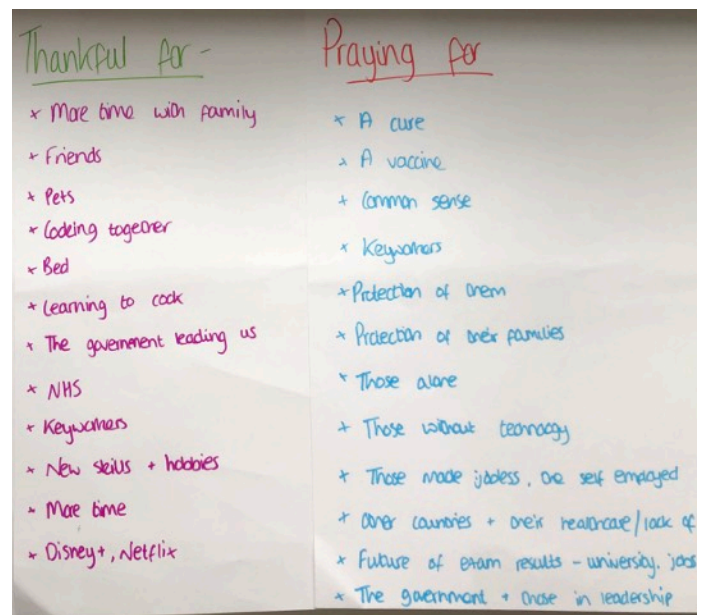 Thankful for -
× More time with family
+ Friends
× Pets
× Cooking together
× Bed
× Learning to cook
× The government leading us
× NHS
+ Keyworkers
× New skills + hobbies
× More time
× Disney+, Netflix
Praying for
× A cure
× A vaccine
+ Common sense
× Keyworkers
× Protection of them
× Protection of their families
× Those alone
+ Those without technology
× Those made jobless, the self employed
× Other countries + their healthcare/lack of
× Future of exam results - university, jobs
× The government + those in leadership